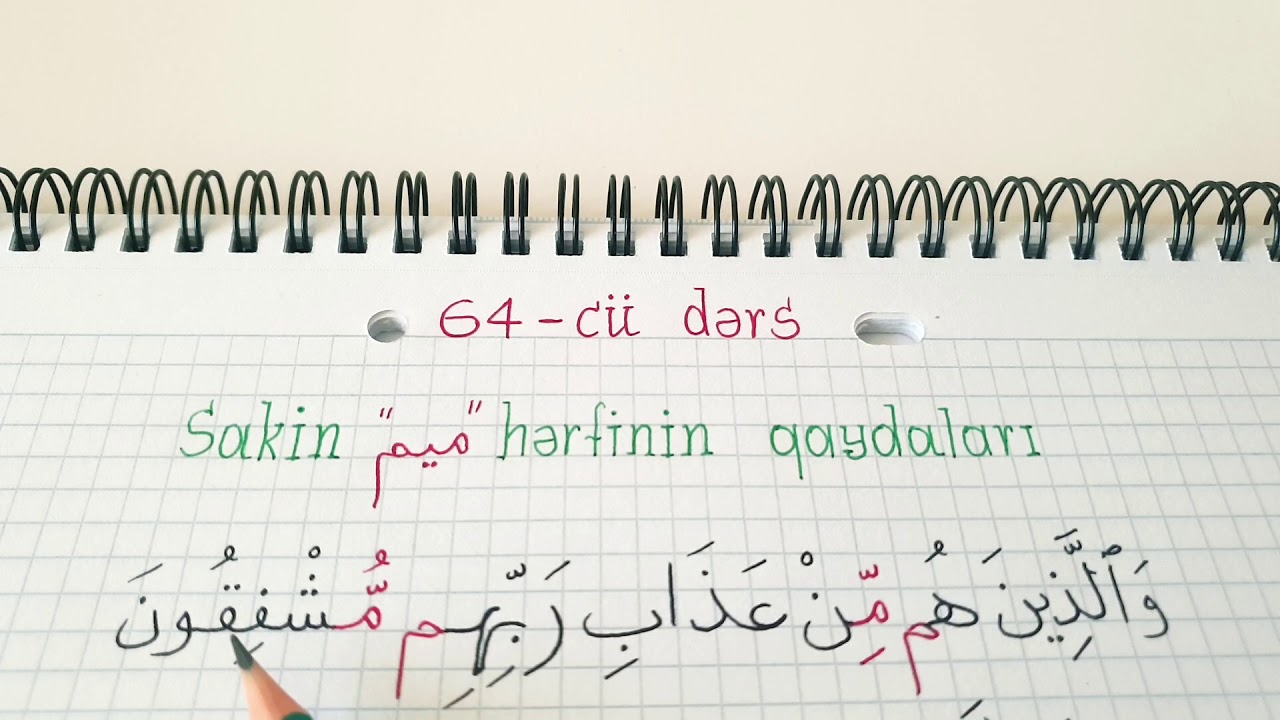 64-cü dərs
Sakin "ميم" hərfinin qaydaları
وَٱلَّذِينَ هُم مِّنْ عَذَابِ رَبِّهِم مُّشْفِقُونَ